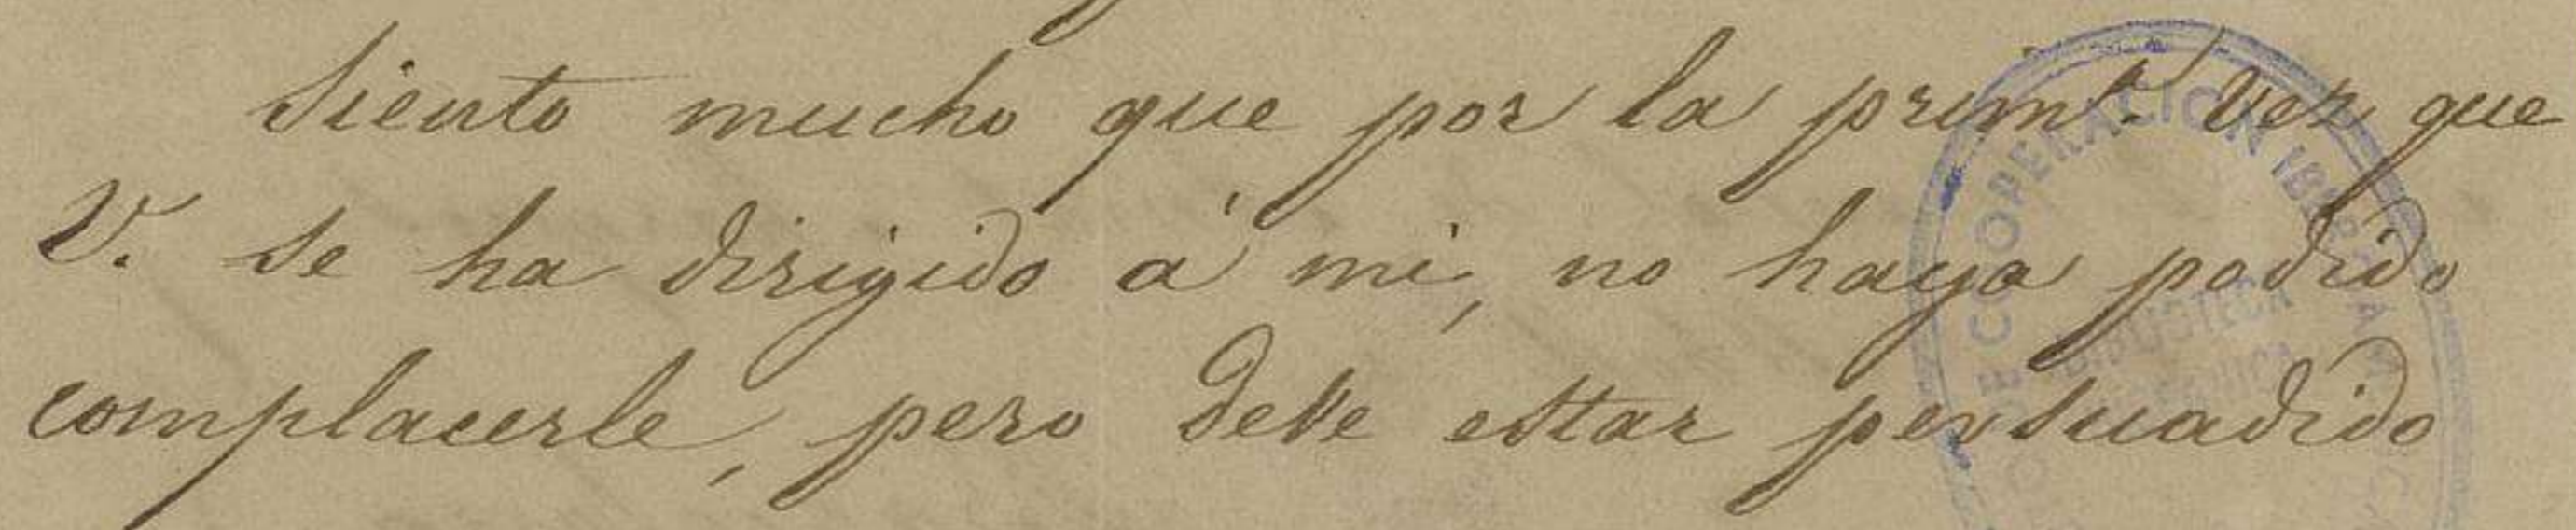 Siento mucho que por la prim.ª vez que
V. se ha dirigido á mi, no haya podido
complacerle, pero deve estar persuadido
COOPERACION
BIBLIOTECA